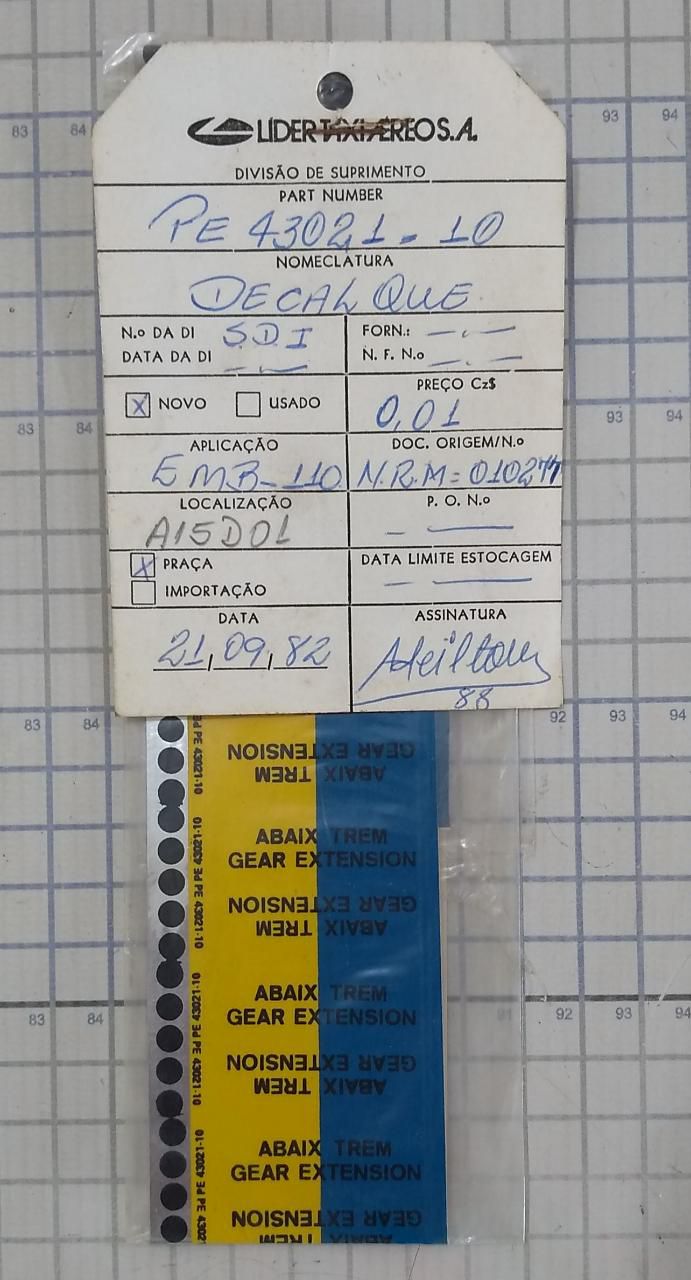 LÍDER TÁXI AÉREO S.A.
DIVISÃO DE SUPRIMENTO
PART NUMBER
PE 43021-10
NOMECLATURA
DECALQUE
N.o DA DI S.D.I
DATA DA DI
FORN.:
N. F. N.o
X NOVO
USADO
PREÇO Cz$
0,01
APLICAÇÃO
EMB-110
DOC. ORIGEM/N.o
N.R.M=010277
LOCALIZAÇÃO
A15D01
P. O. N.o
X PRAÇA
IMPORTAÇÃO
DATA LIMITE ESTOCAGEM
DATA
21,09,82
ASSINATURA
88
ABAIX TREM
GEAR EXTENSION
ABAIX TREM
GEAR EXTENSION
ABAIX TREM
GEAR EXTENSION
ABAIX TREM
GEAR EXTENSION
ABAIX TREM
GEAR EXTENSION
ABAIX TREM
GEAR EXTENSION
ABAIX TREM
GEAR EXTENSION
PE 43021-10
PE 43021-10
PE 43021-10
PE 43021-10
PE 43021-10
PE 43021-10
83 84
93 94
83 84
93
83 84
92 93 94
83 84
91 92 93 94